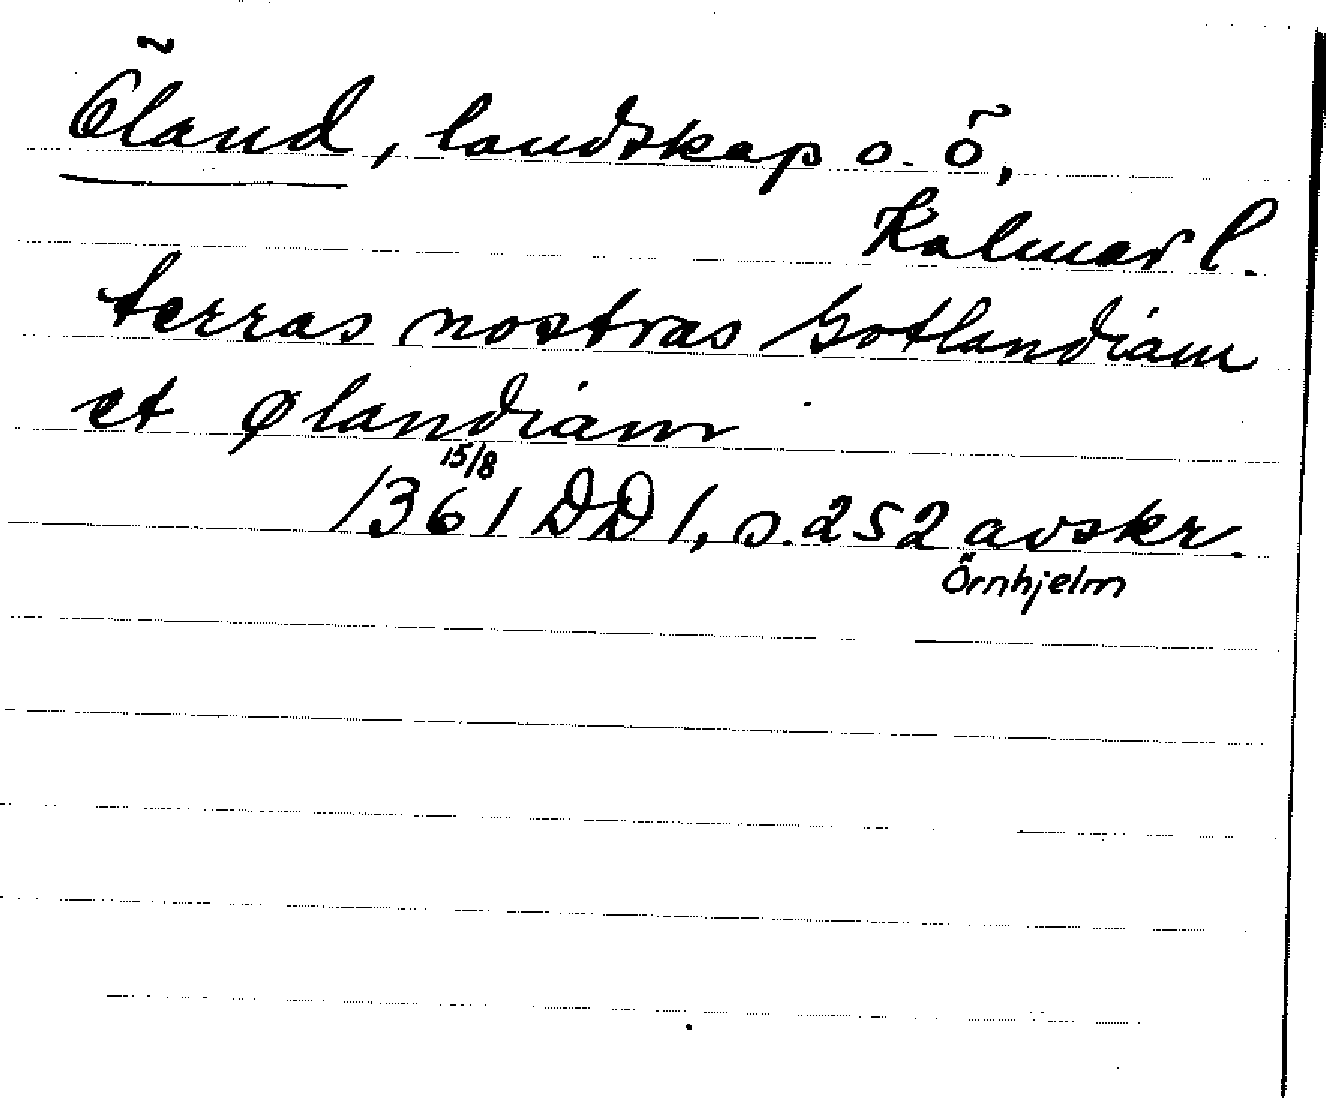 Öland, landskap o. ö,
Kalmar l.
terras nostras Gotlandiam
et Ølandiam
15/8
1361 DD 1, s. 252 avskr.
Örnhjelm